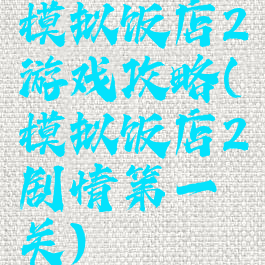 模拟饭店2
游戏攻略(
模拟饭店2
剧情第一
关)